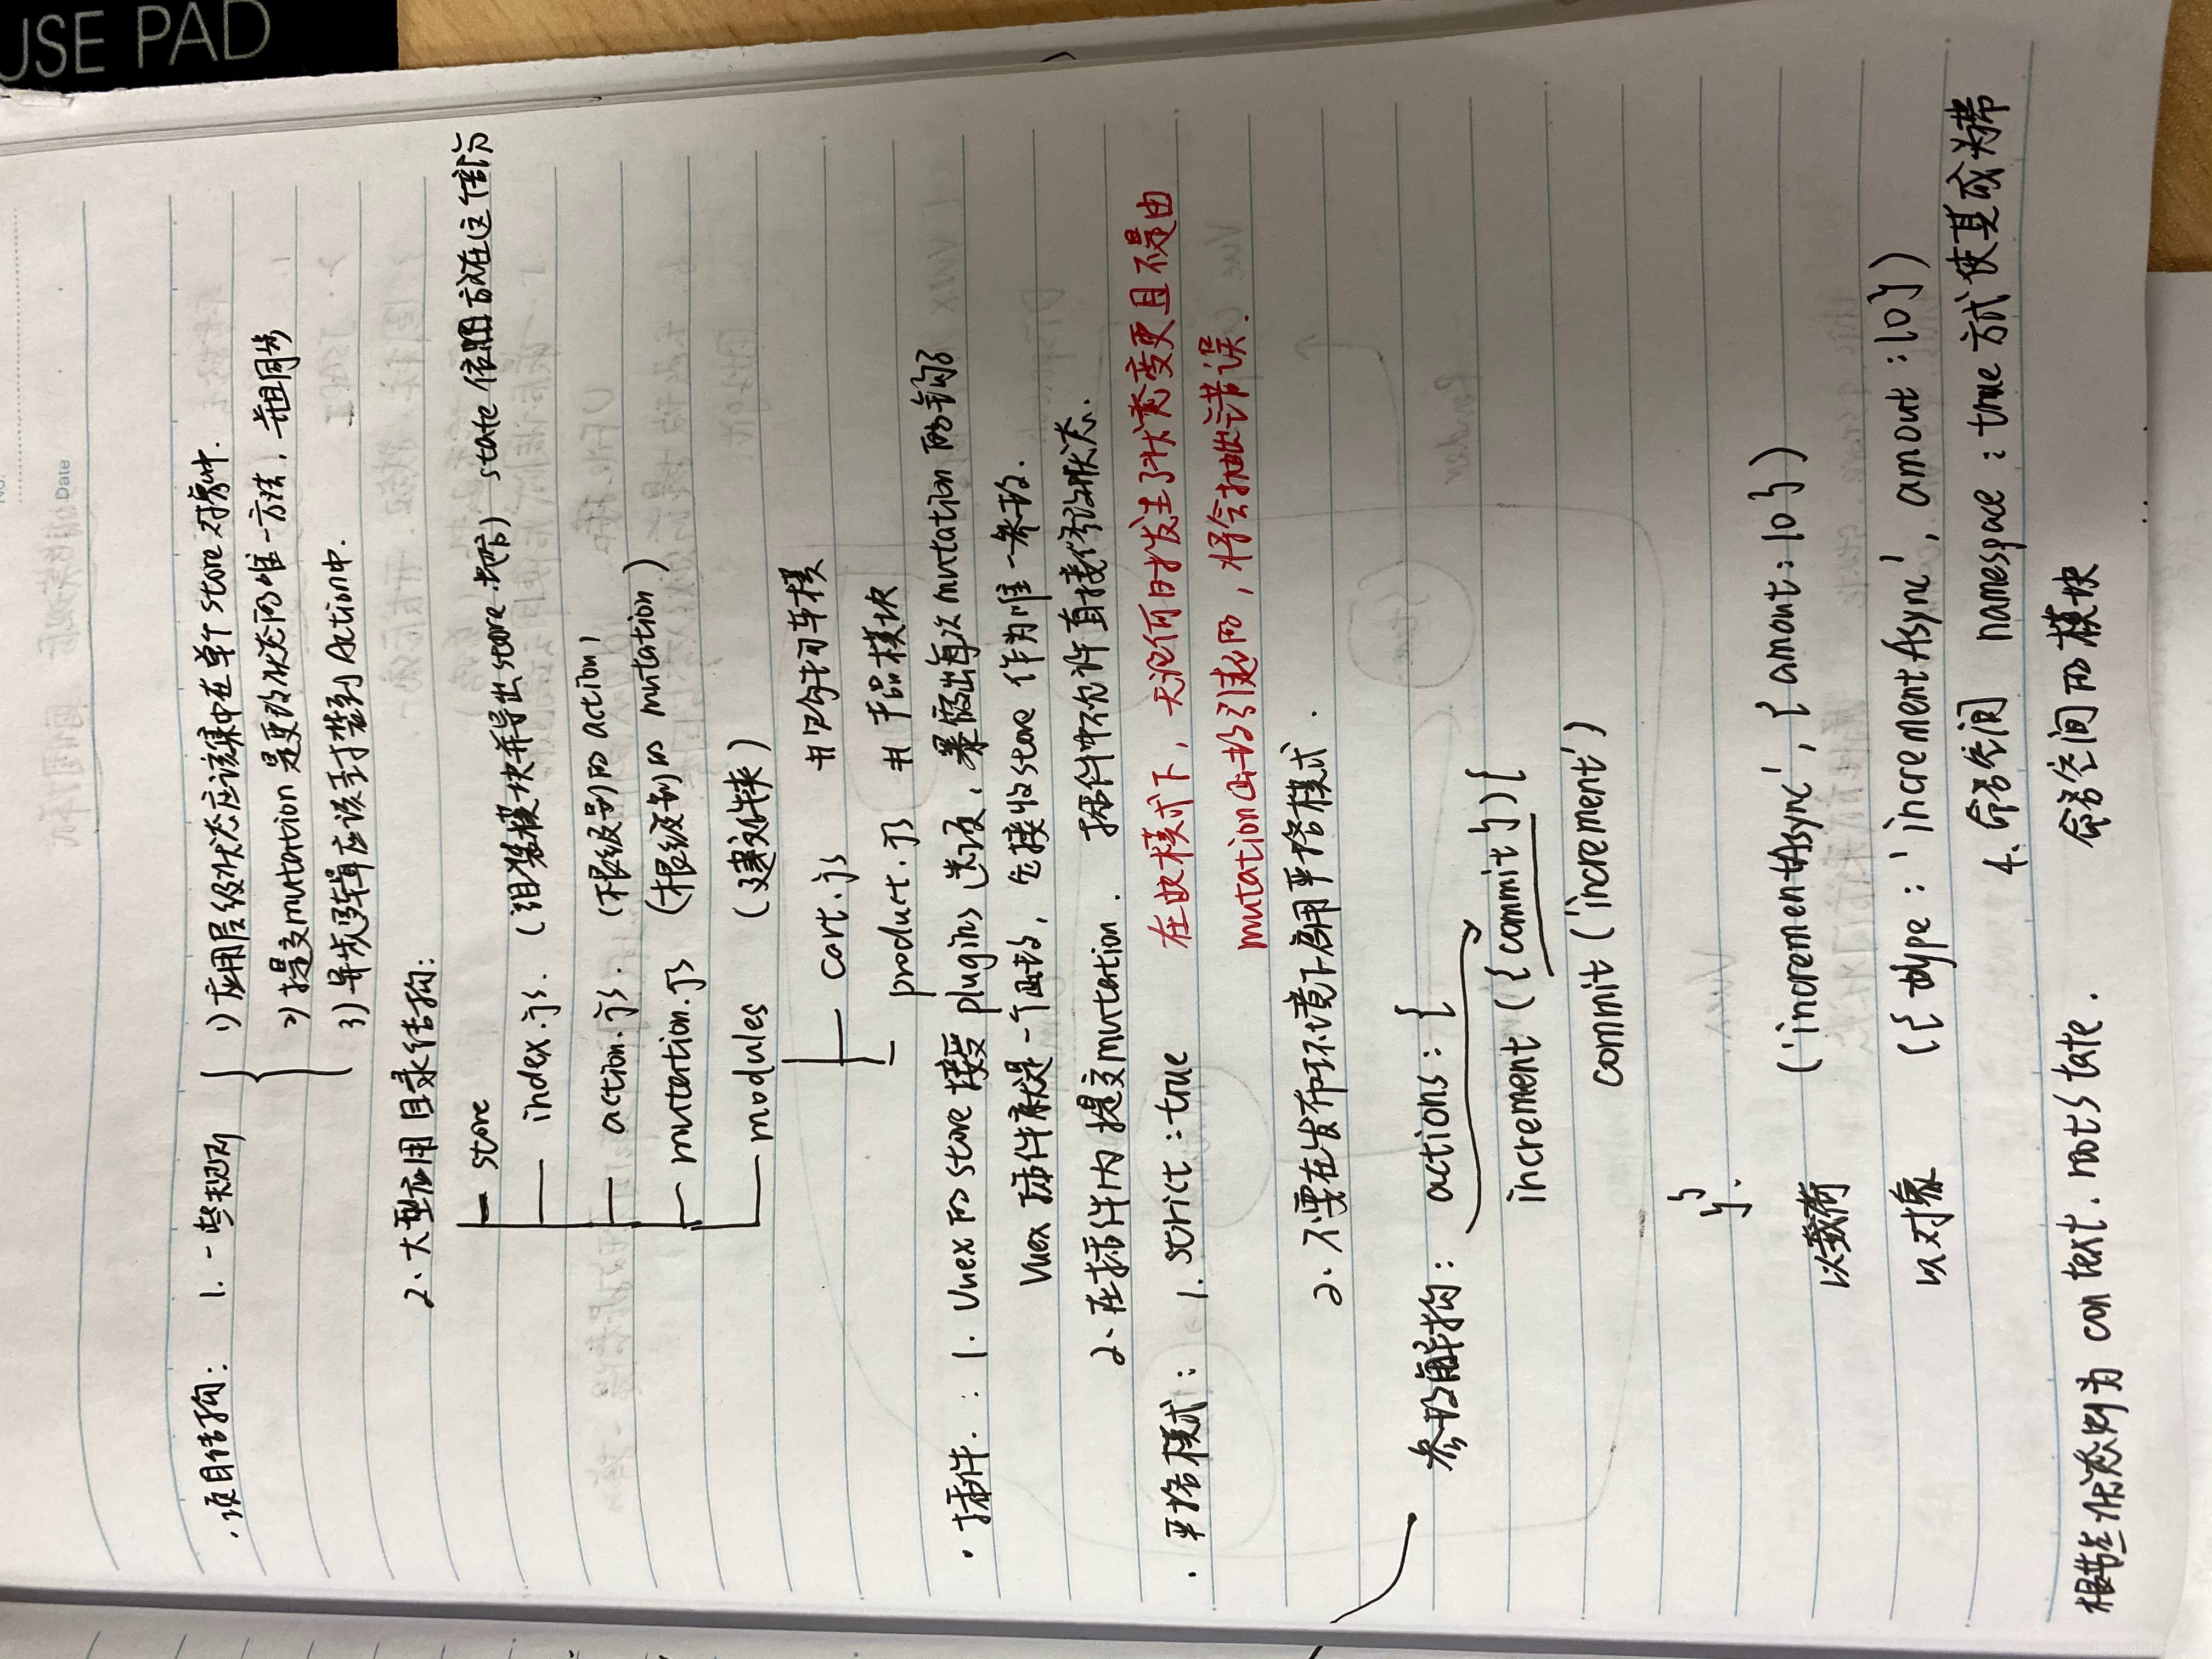 USE PAD
No.
Date
·项目结构: 1. 一些规则 { 1) 应用层级状态应该集中在单个store对象中.
2) 提交mutation是更改状态的唯一方法, 并且同步
3) 异步逻辑应该封装到Action中.
2. 大型应用目录结构:
store
index.js. (组装模块并导出store地方) state依旧放在这
action.js. (根级别的action)
mutation.js (根级别的mutation)
modules (建文件夹)
cart.js #购物车模
product.js #产品模块
·插件.: 1. Vuex的store接受plugins选项, 暴露出每次mutation的钩子
Vuex插件就是一个函数, 它接收store作为唯一参数.
2. 在插件内提交mutation. 插件中不允许直接修改状态.
·严格模式: 1. strict: true 在此模式下, 无论何时发生了状态变更且不是由
mutation函数引起的, 将会抛出错误.
2. 不要在发布环境下启用严格模式.
参数解构: actions: {
increment ({ commit }) {
commit ('increment')
}
}.
以载荷 ('incrementAsync', { amout: 10 })
以对象 ({ type: 'incrementAsync', amout: 10 })
4. 命名空间 namespace: true 方式使其成为带
命名空间的模块
根节点状态则为 context.rootState.